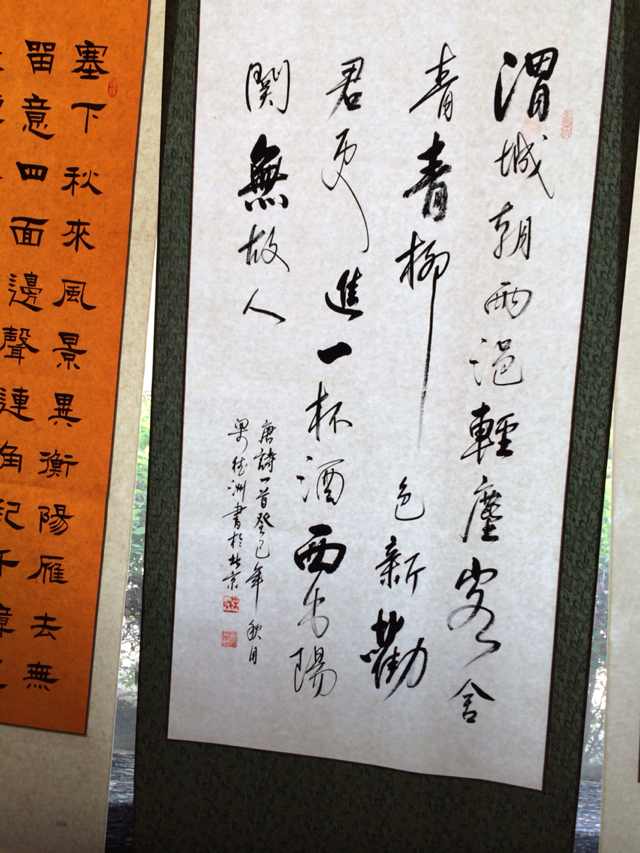 渭城朝雨浥輕塵客舍
青青柳色新勸
君更進一杯酒西出陽
關無故人
唐詩一首癸巳年秋月
梁德洲書於北京
塞下秋來風景異衡陽雁去無
留意四面邊聲連角起千嶂